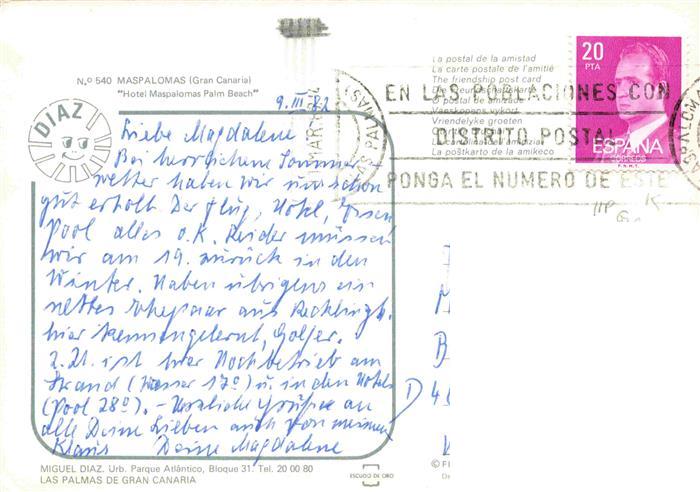 N.º 540 MASPALOMAS (Gran Canaria)
"Hotel Maspalomas Palm Beach"
DIAZ
9.III.82
Liebe Magdalene
Bei herrlichem Sommer-
wetter haben wir uns schon
gut erholt. Der Flug, Hotel, Essen
Pool alles o.K. Leider müssen
wir am 19. zurück in den
Winter. Haben übrigens ein
nettes Ehepaar aus Recklingh.
hier kennengelernt, Golfer.
z. Zt. ist hier Hochbetrieb am
Strand (Wasser 17º) u. in den Hotels
(Pool 28º). – Herzliche Grüße an
alle Deine Lieben auch von meinem
Klaus Deine Magdalene
La postal de la amistad
La carte postale de l'amitié
The friendship post card
Die Freundschaftskarte
Vriendelyke groeten
La poŝtkarto de la amikeco
EN LAS POBLACIONES CON
DISTRITO POSTAL
PONGA EL NUMERO DE ESTE
20
PTA
ESPAÑA
CORREOS
F.N.M.T.
D 4
MIGUEL DIAZ. Urb. Parque Atlántico, Bloque 31. Tel. 20 00 80
LAS PALMAS DE GRAN CANARIA
ESCUDO DE ORO
© FI